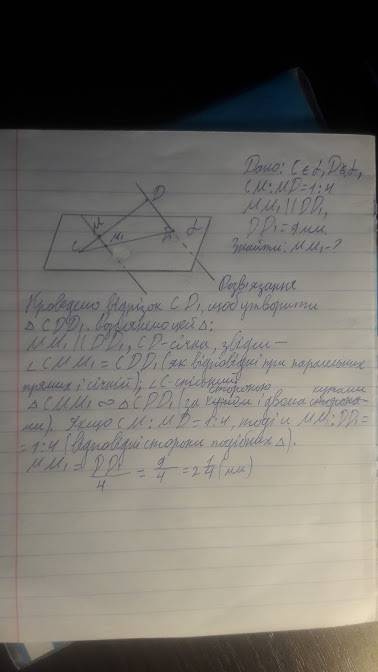 Дано: C ∈ α, D ∉ α,
CM:MD=1:4
MM₁ || DD₁
DD₁=9мм.
Знайти: MM₁-?
D
M
M₁
D₁
α
C
Розв'язання
Проведемо відрізок CD₁, щоб утворити
△CDD₁. Розглянемо цей △:
MM₁ || DD₁, CD-січна, звідси —
∠CMM₁ = CDD₁ (як відповідні при паралельних
прямих і січній); ∠C-спільний
стороною кутами
△CMM₁ ∞ △CDD₁ (за кутом і двома сторона-
ми). Якщо CM:MD=1:4, тоді и MM₁:DD₁=
=1:4 (відповідні сторони подібних △).
MM₁ = DD₁/4 = 9/4 = 2 1/4 (мм)